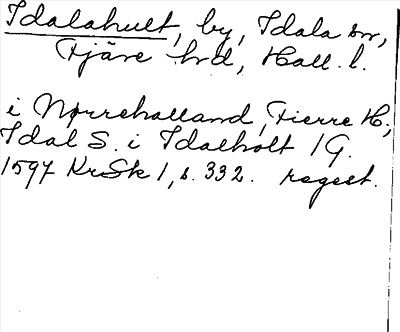 Idalahult, by, Idala sn,
Fjäre hrd, Hall. l.
i Nørrehalland, Fierre H.,
Idal S. i Idalholt 1 G.
1597 KrSk 1, s. 332. regest.